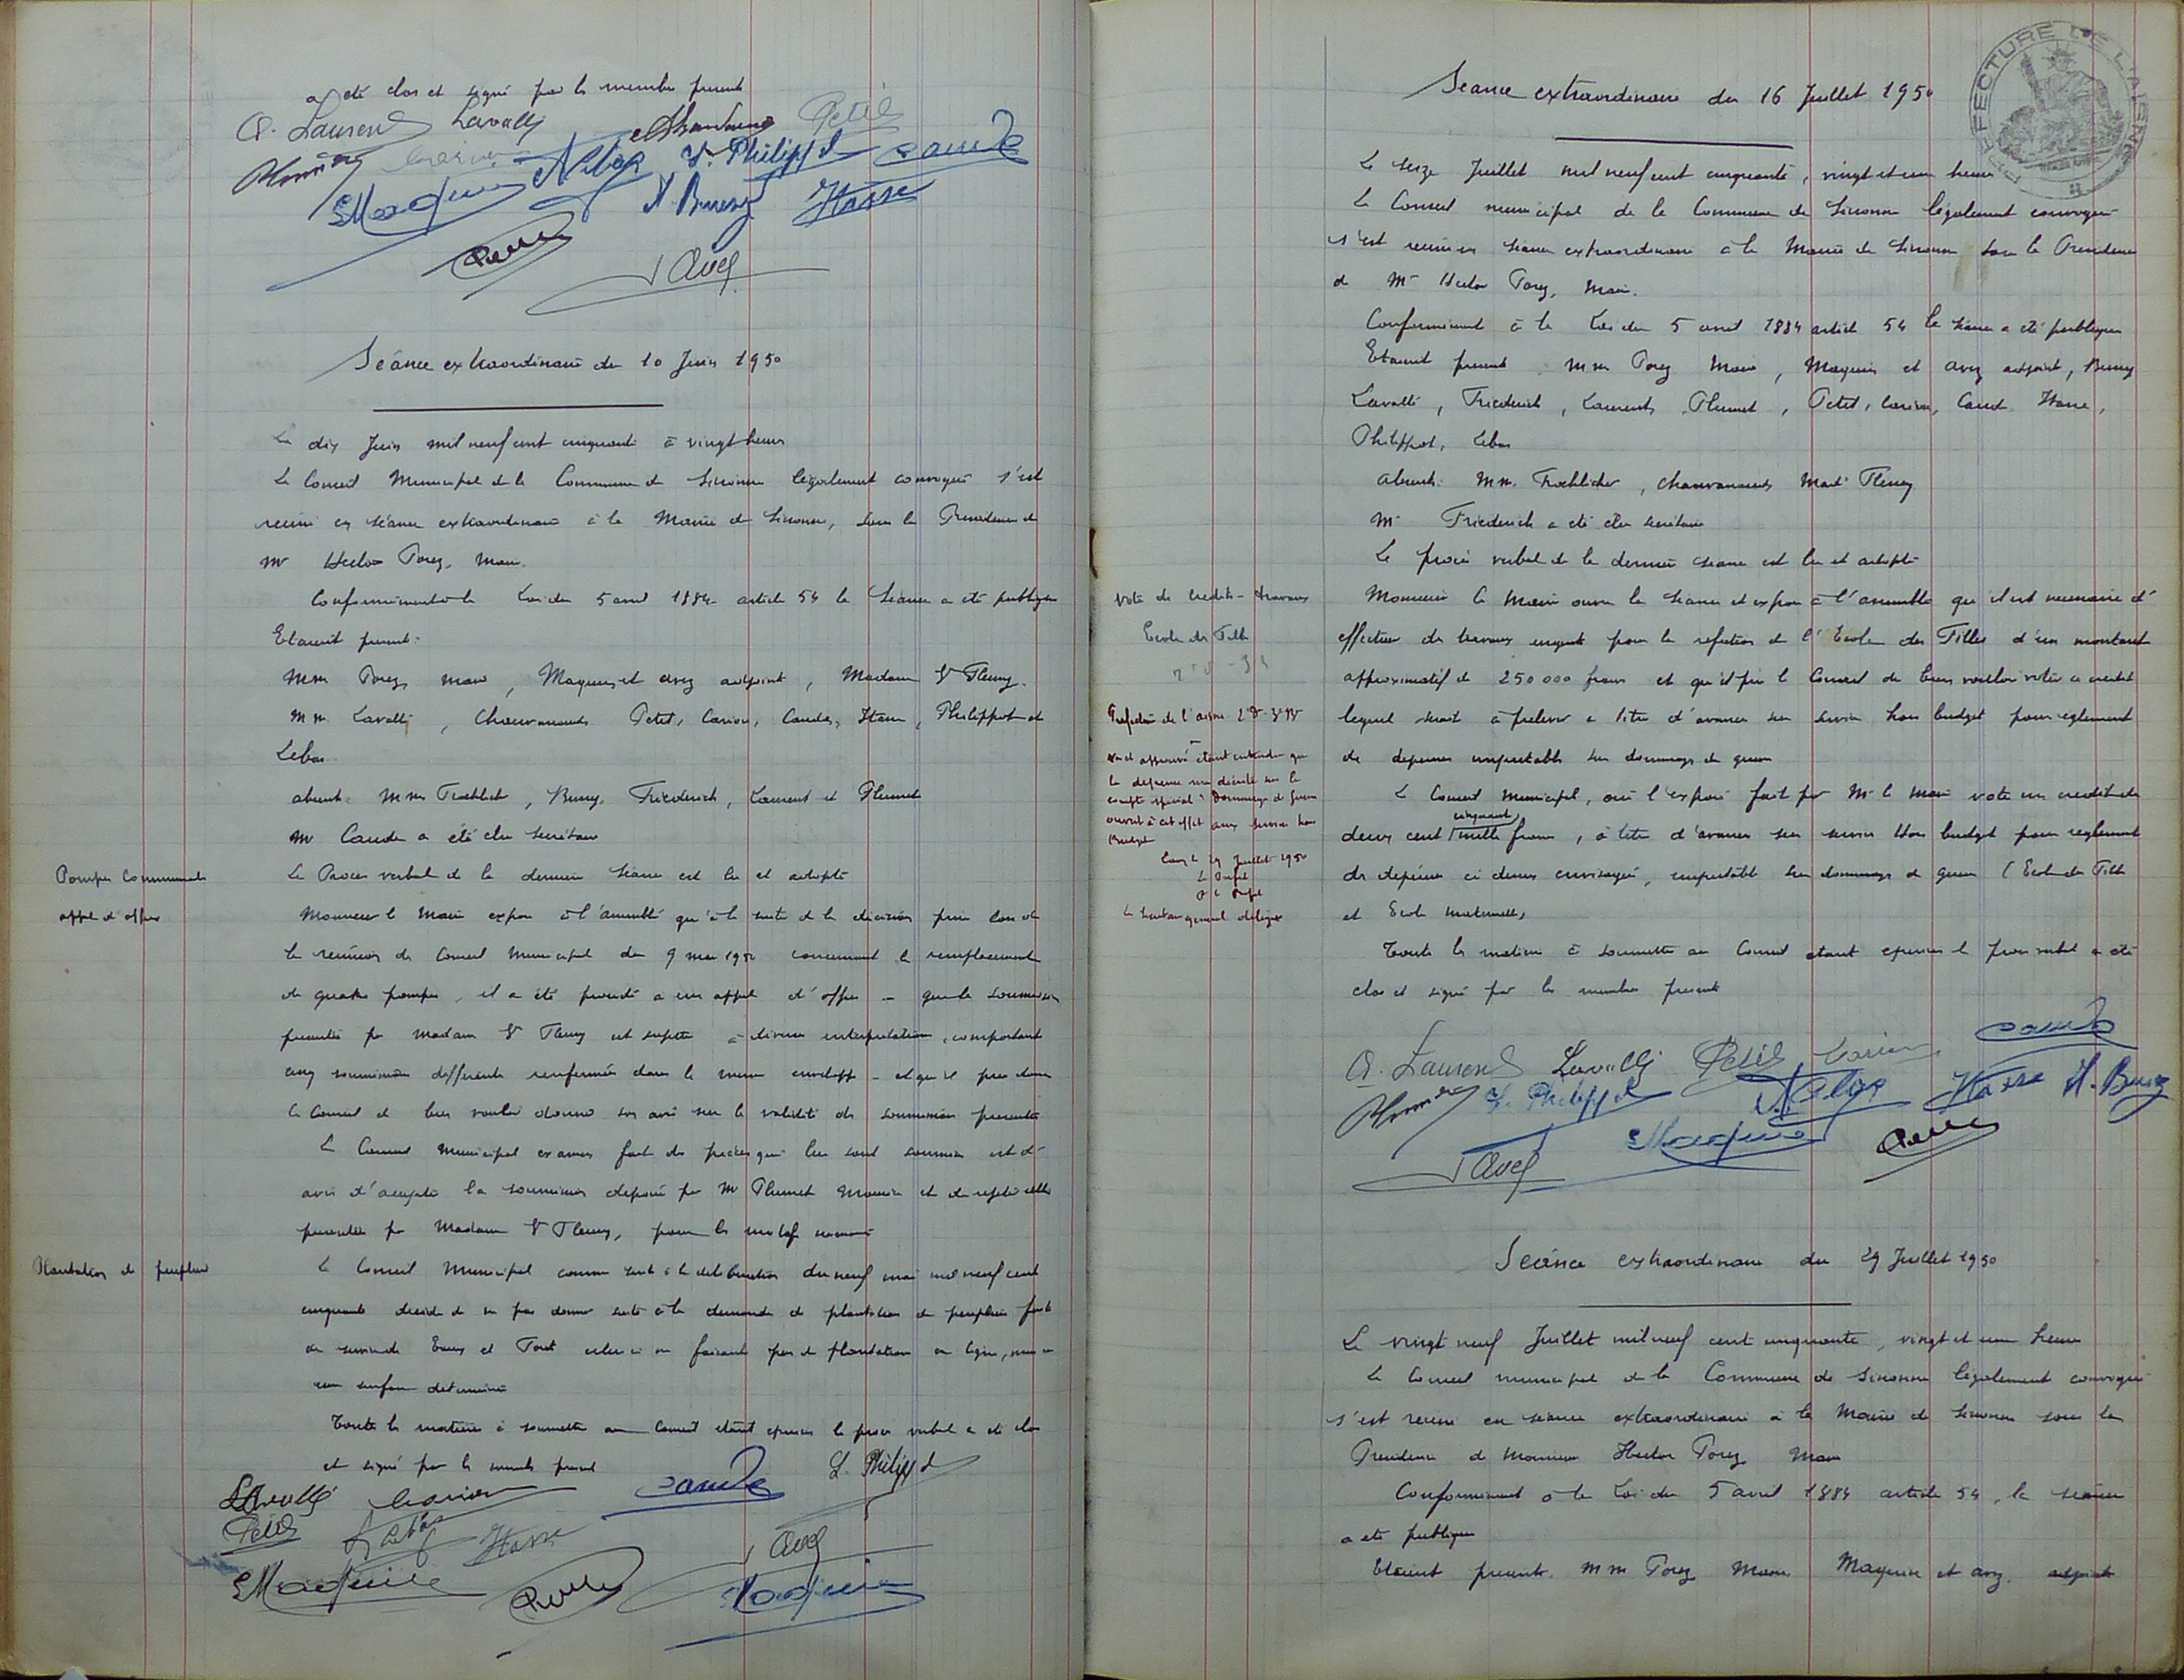 a été clos et signé par les membres présents
A. Laurent Lavallé Chauvanand Petit
Carion N Lebas L. Philippot Caude
EMaquin H. Bussy Hasse
Avez
Séance extraordinaire du 10 Juin 1950
Le dix Juin mil neuf cent cinquante à vingt heures
Le Conseil Municipal de la Commune de Sissonne légalement convoqué s'est
réuni en séance extraordinaire à la Mairie de Sissonne, sous la Présidence de
Mr Hector Porez, Maire.
Conformément à la Loi du 5 avril 1884 article 54 la Séance a été publique
Etaient présents:
MM Porez, maire, Maquin et Avez adjoints, Madame Vve Fleury.
MM. Lavallé, Chauvanands Petit, Carion, Caude, Hasse, Philippot et
Lebas
absents: MM Froehlich, Bussy, Friederich, Laurent et Plumet
Mr Caude a été élu secrétaire
Pompes Communales
appel d'offres
Le Procès verbal de la dernière séance est lu et adopté
Monsieur le Maire expose à l'assemblée qu'à la suite de la décision prise lors de
la réunion du Conseil Municipal du 9 mai 1950 concernant le remplacement
de quatre pompes, il a été procédé a un appel d'offres - que la soumission
présentée par Madame Vve Fleury est sujette à diverses interprétations, comportant
cinq soumissions différentes renfermées dans la même enveloppe - et qu'il prie donc
le Conseil de bien vouloir donner son avis sur la validité des soumissions présentées
Le Conseil Municipal examen fait des pièces qui lui sont soumises est d'
avis d'accepter la soumission déposée par Mr Plumet Maurice et de rejeter celle
présentée par Madame Vve Fleury, pour les motifs
Plantation de peupliers
Le Conseil Municipal comme suite à la délibération du neuf mai mil neuf cent
cinquante décide de ne pas donner suite à la demande de plantation de peupliers faite
au service des Eaux et Forêt celui ci ne faisant pas de plantation en ligne, mais en
une surface déterminée
Toutes les matières à soumettre au Conseil étant épuisées le procès verbal a été clos
et signé par les membres présents
LLavallé Carion Caude L. Philippot
Petit N Lebas Hasse Avez
EMaquin Maquin
PREFECTURE DE L'AISNE
Séance extraordinaire du 16 Juillet 1950
Le seize Juillet mil neuf cent cinquante, vingt et une heures
Le Conseil municipal de la Commune de Sissonne légalement convoqué
s'est réuni en séance extraordinaire à la Mairie de Sissonne sous la Présidence
de Mr Hector Porez, Maire.
Conformément à la Loi du 5 avril 1884 article 54 la séance a été publique
Etaient présents: MM Porez Maire, Maquin et Avez adjoints, Bussy
Lavallé, Friederich, Laurent, Plumet, Petit, Carion, Caude, Hasse,
Philippot, Lebas
absents: MM. Froehlicher, Chauvanands Mad Fleury
Mr Friederich a été élu secrétaire
Le procès verbal de la dernière séance est lu et adopté
Vote de crédits - travaux
Ecole des Filles
Monsieur le Maire ouvre la séance et expose à l'assemblée qu'il est nécessaire d'
effectuer des travaux urgents pour la réfection de l'Ecole des Filles d'un montant
approximatif de 250 000 francs et qu'il prie le Conseil de bien vouloir voter ce crédit
lequel serait à prélever a titre d'avance sur service hors budget pour règlement
de dépenses imputables sur dommages de guerre
Préfecture de l'Aisne
Vu et approuvé étant entendu que
la dépense sera décrite sur le
compte spécial "Dommages de guerre
ouvert à cet effet aux services hors
Budget
Laon le 29 Juillet 1950
Le Préfet
P le Préfet
Le Secrétaire général délégué
Le Conseil Municipal, ouï l'exposé fait par Mr le Maire vote un crédit de
deux cent cinquante mille francs, à titre d'avance sur service hors budget pour règlement
des dépenses ci dessus envisagées, imputables sur dommages de guerre (Ecole des Filles
et Ecole maternelle,
Toutes les matières à soumettre au Conseil étant épuisées le procès verbal a été
clos et signé par les membres présents
A. Laurent Lavallé Petit Carion Caude
L. Philippot N. Lebas Hasse H. Bussy
EMaquin
Avez
Séance extraordinaire du 29 Juillet 1950
Le vingt neuf Juillet mil neuf cent cinquante, vingt et une heures
Le Conseil municipal de la Commune de Sissonne légalement convoqué
s'est réuni en séance extraordinaire à la Mairie de Sissonne sous la
Présidence de Monsieur Hector Porez Maire
Conformément à la Loi du 5 avril 1884 article 54, la séance
a été publique
Etaient présents. MM Porez Maire Maquin et Avez. adjoints